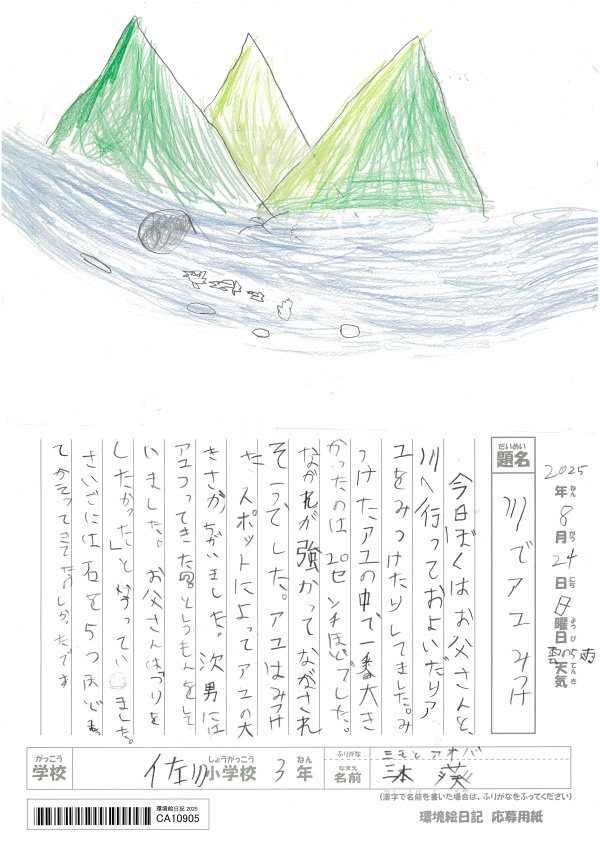 2025年8月24日日曜日
ねん
がつ
にち
ようび
てんき
天気
だいめい
題名
川でアユみつけ
今日ぼくはお父さんと、
川へ行っておよいだりア
ユをみつけたりしてました。み
つけたアユの中で一番大き
かったのは20センチほどでした。
ながれが強かってながされ
そうでした。アユはみつけ
た スポットによってアユの大
きさがちがいました。次男には
アユつってきた
いました。お父さんは「つりを
したかったな」と言っていました。
さいごには石を5つほど
てかえってきてたのしかったです
がっこう
学校
佐川
しょうがっこう
小学校
3
ねん
年
ふりがな
ミモと アオバ
なまえ
名前
三本 葵
(漢字で名前を書いた場合は、ふりがなをふってください)
環境絵日記 2025
CA10905
環境絵日記 応募用紙